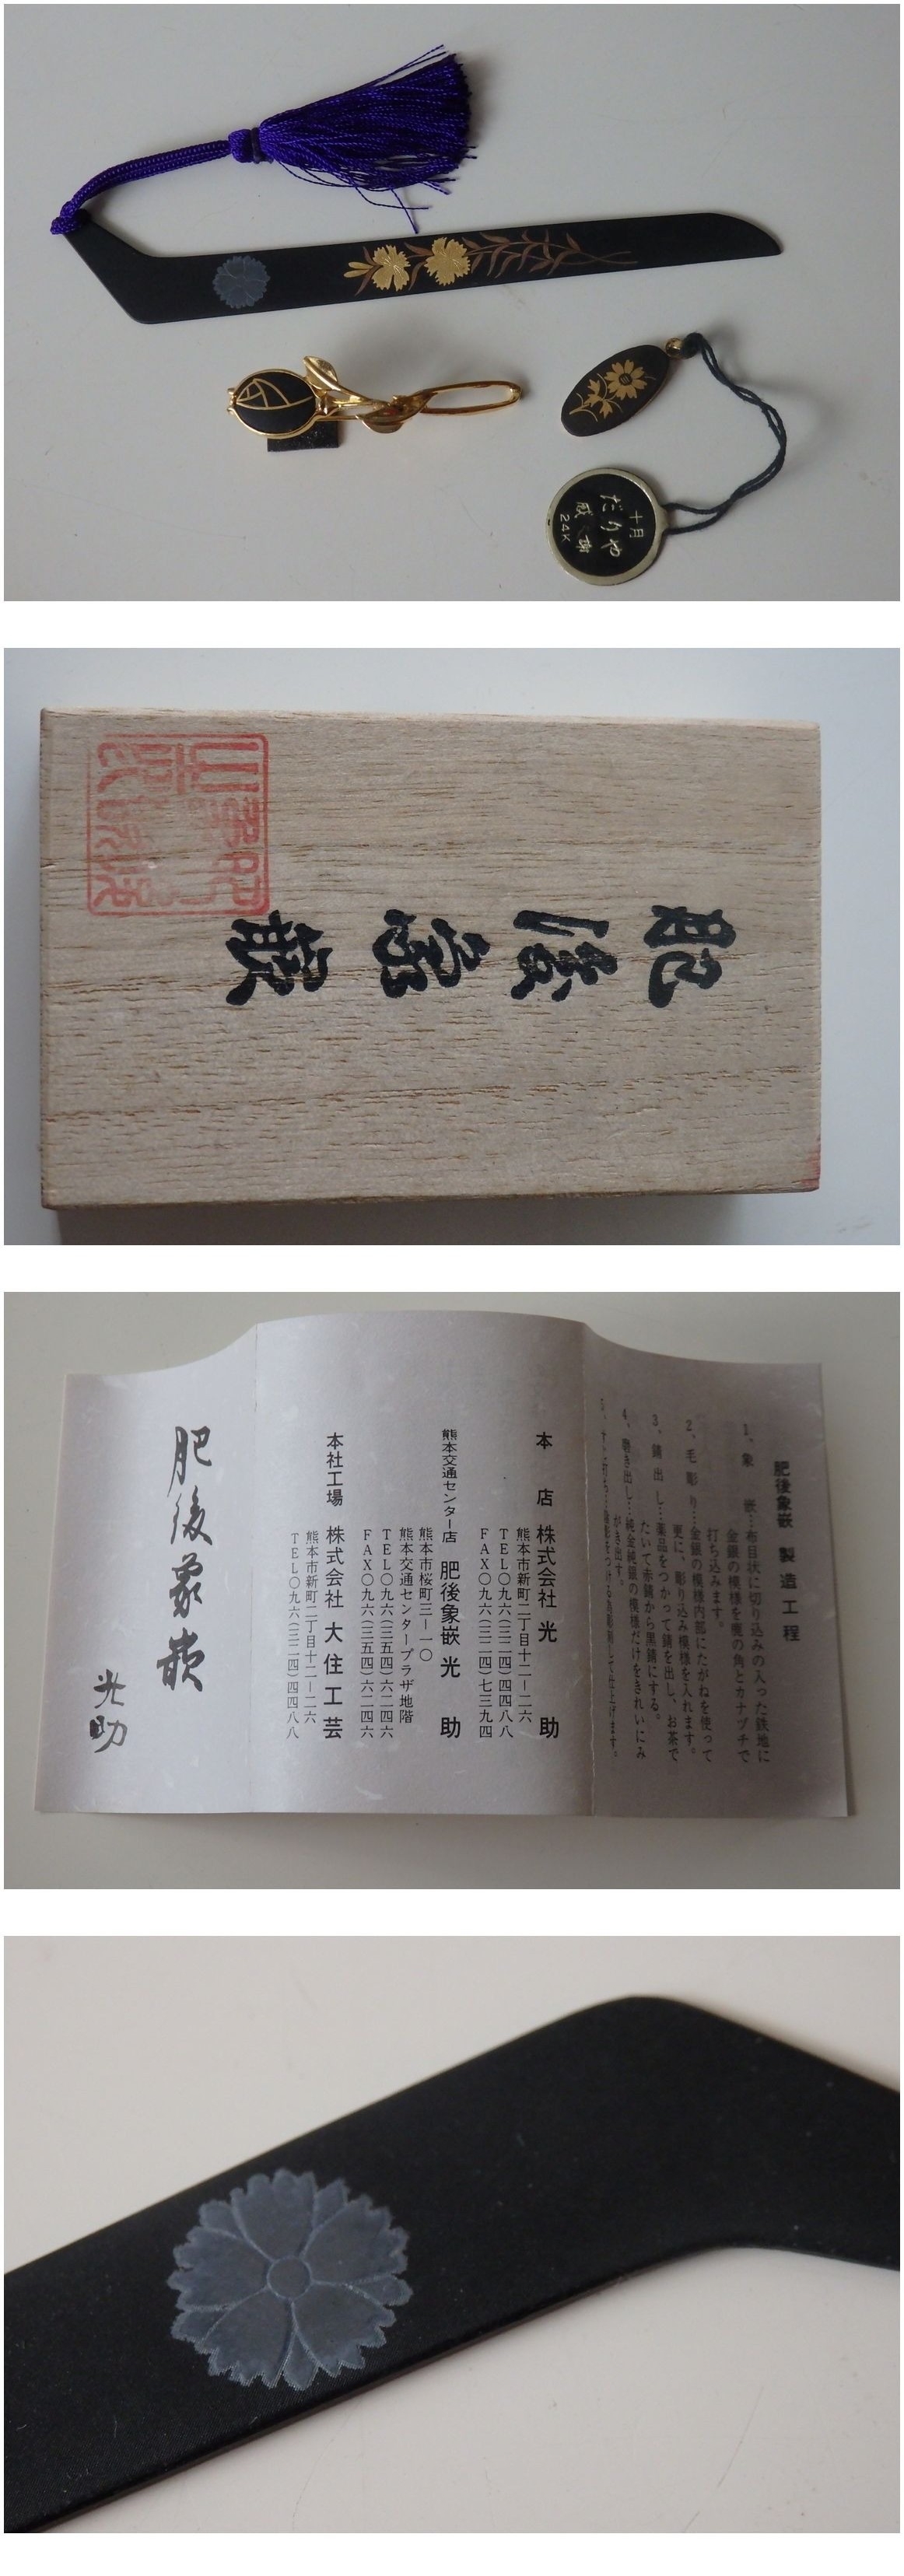 十月
だりや
感謝
24K
肥後象嵌
肥後象嵌 製造工程
1、象嵌…布目状に切り込みの入った鉄地に
金銀の模様を鹿の角とカナヅチで
打ち込みます。
2、毛彫り…金銀の模様内部にたがねを使って
更に、彫り込み模様を入れます。
3、錆出し…薬品をつかって錆を出し、お茶で
たいて赤錆から黒錆にする。
4、磨き出し…純金純銀の模様だけをきれいにみ
がき出す。
本店 株式会社 光助
熊本市新町二丁目十二ー二六
TEL〇九六(三二四)四四八八
FAX〇九六(三二四)七三九四
熊本交通センター店 肥後象嵌 光助
熊本市桜町三ー一〇
熊本交通センタープラザ地階
TEL〇九六(三五四)六二四六
FAX〇九六(三五四)六二四六
本社工場 株式会社 大住工芸
熊本市新町二丁目十二ー二六
TEL〇九六(三二四)四四八八
肥後象嵌
光助